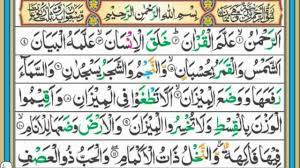 بِسْمِ اللهِ الرَّحْمٰنِ الرَّحِيْمِ
اَلرَّحْمٰنُ ۙ عَلَّمَ الْقُرْاٰنَ ؕ خَلَقَ الْاِنْسَانَ ۙ عَلَّمَهُ الْبَيَانَ
اَلشَّمْسُ وَالْقَمَرُ بِحُسْبَانٍ ۙ وَّالنَّجْمُ وَالشَّجَرُ يَسْجُدٰنِ وَالسَّمَآءَ
رَفَعَهَا وَوَضَعَ الْمِيْزَانَ ۙ اَلَّا تَطْغَوْا فِي الْمِيْزَانِ وَاَقِيْمُوا
الْوَزْنَ بِالْقِسْطِ وَلَا تُخْسِرُوا الْمِيْزَانَ وَالْاَرْضَ وَضَعَهَا لِلْاَنَامِ
فِيْهَا فَاكِهَةٌ وَّالنَّخْلُ ذَاتُ الْاَكْمَامِ وَالْحَبُّ ذُو الْعَصْفِ